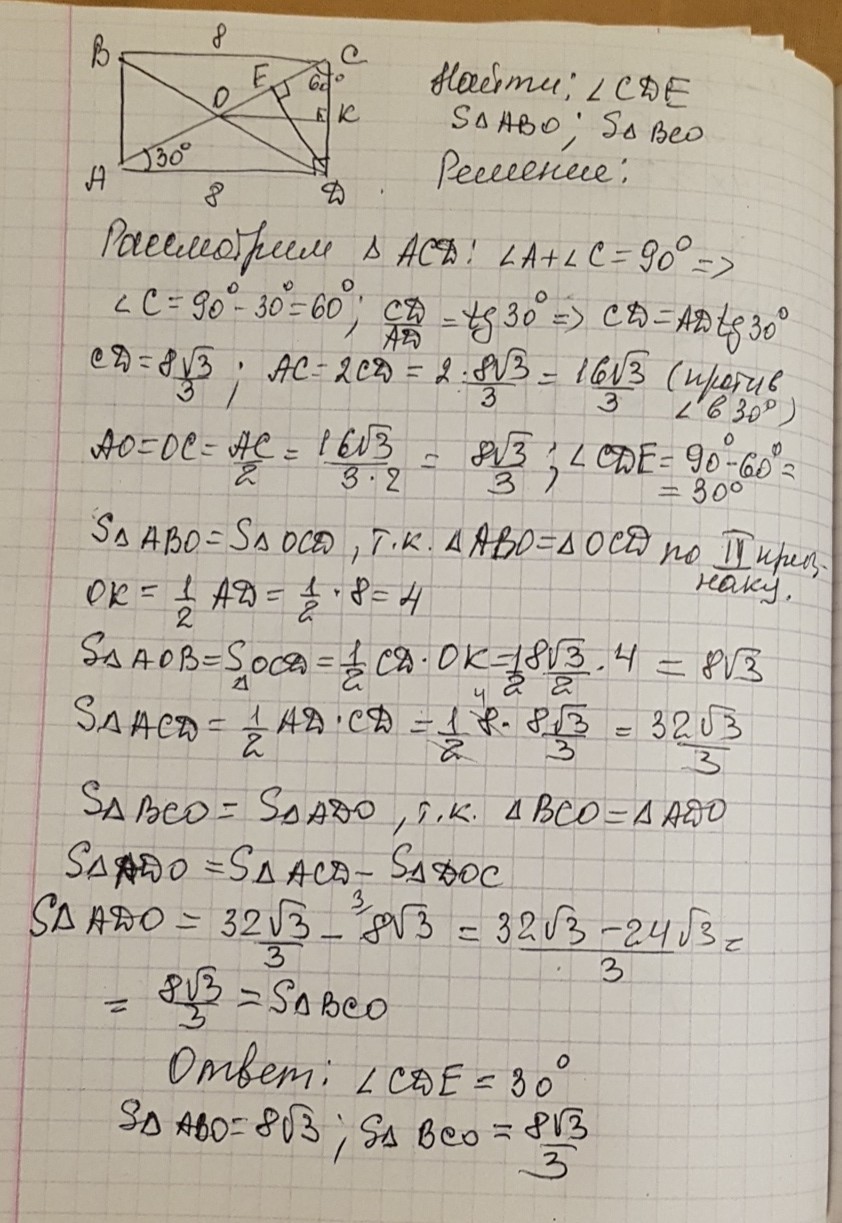 B 8 C
E 60°
O K
A 30°
8 D
Найти: ∠CDE
S△ABO; S△BCO
Решение:
Рассмотрим △ ACD: ∠A+∠C=90° =>
∠C=90°-30°=60°; CD/AD = tg 30° => CD=AD tg 30°
CD=8√3/3; AC=2CD = 2·8√3/3 = 16√3/3 (против
∠ в 30°)
AO=OC= AC/2 = 16√3/3·2 = 8√3/3; ∠CDE= 90°-60°=
= 30°
S△ABO=S△OCD, т.к. △ABO=△OCD по II приз-
наку.
OK = 1/2 AD= 1/2 · 8=4
S△AOB=S△OCD=1/2 CD·OK=1/2 8√3/2 ·4 = 8√3
S△ACD= 1/2 AD·CD = 1/2 8· 8√3/3 = 32√3/3
4
S△BCO= S△ADO, т.к. △BCO=△ADO
S△ADO =S△ACD- S△DOC
S△ADO = 32√3/3 - 8√3 = 32√3 -24√3/3 =
3
= 8√3/3 = S△BCO
Ответ: ∠CDE = 30°
S△ABO=8√3; S△BCO = 8√3/3